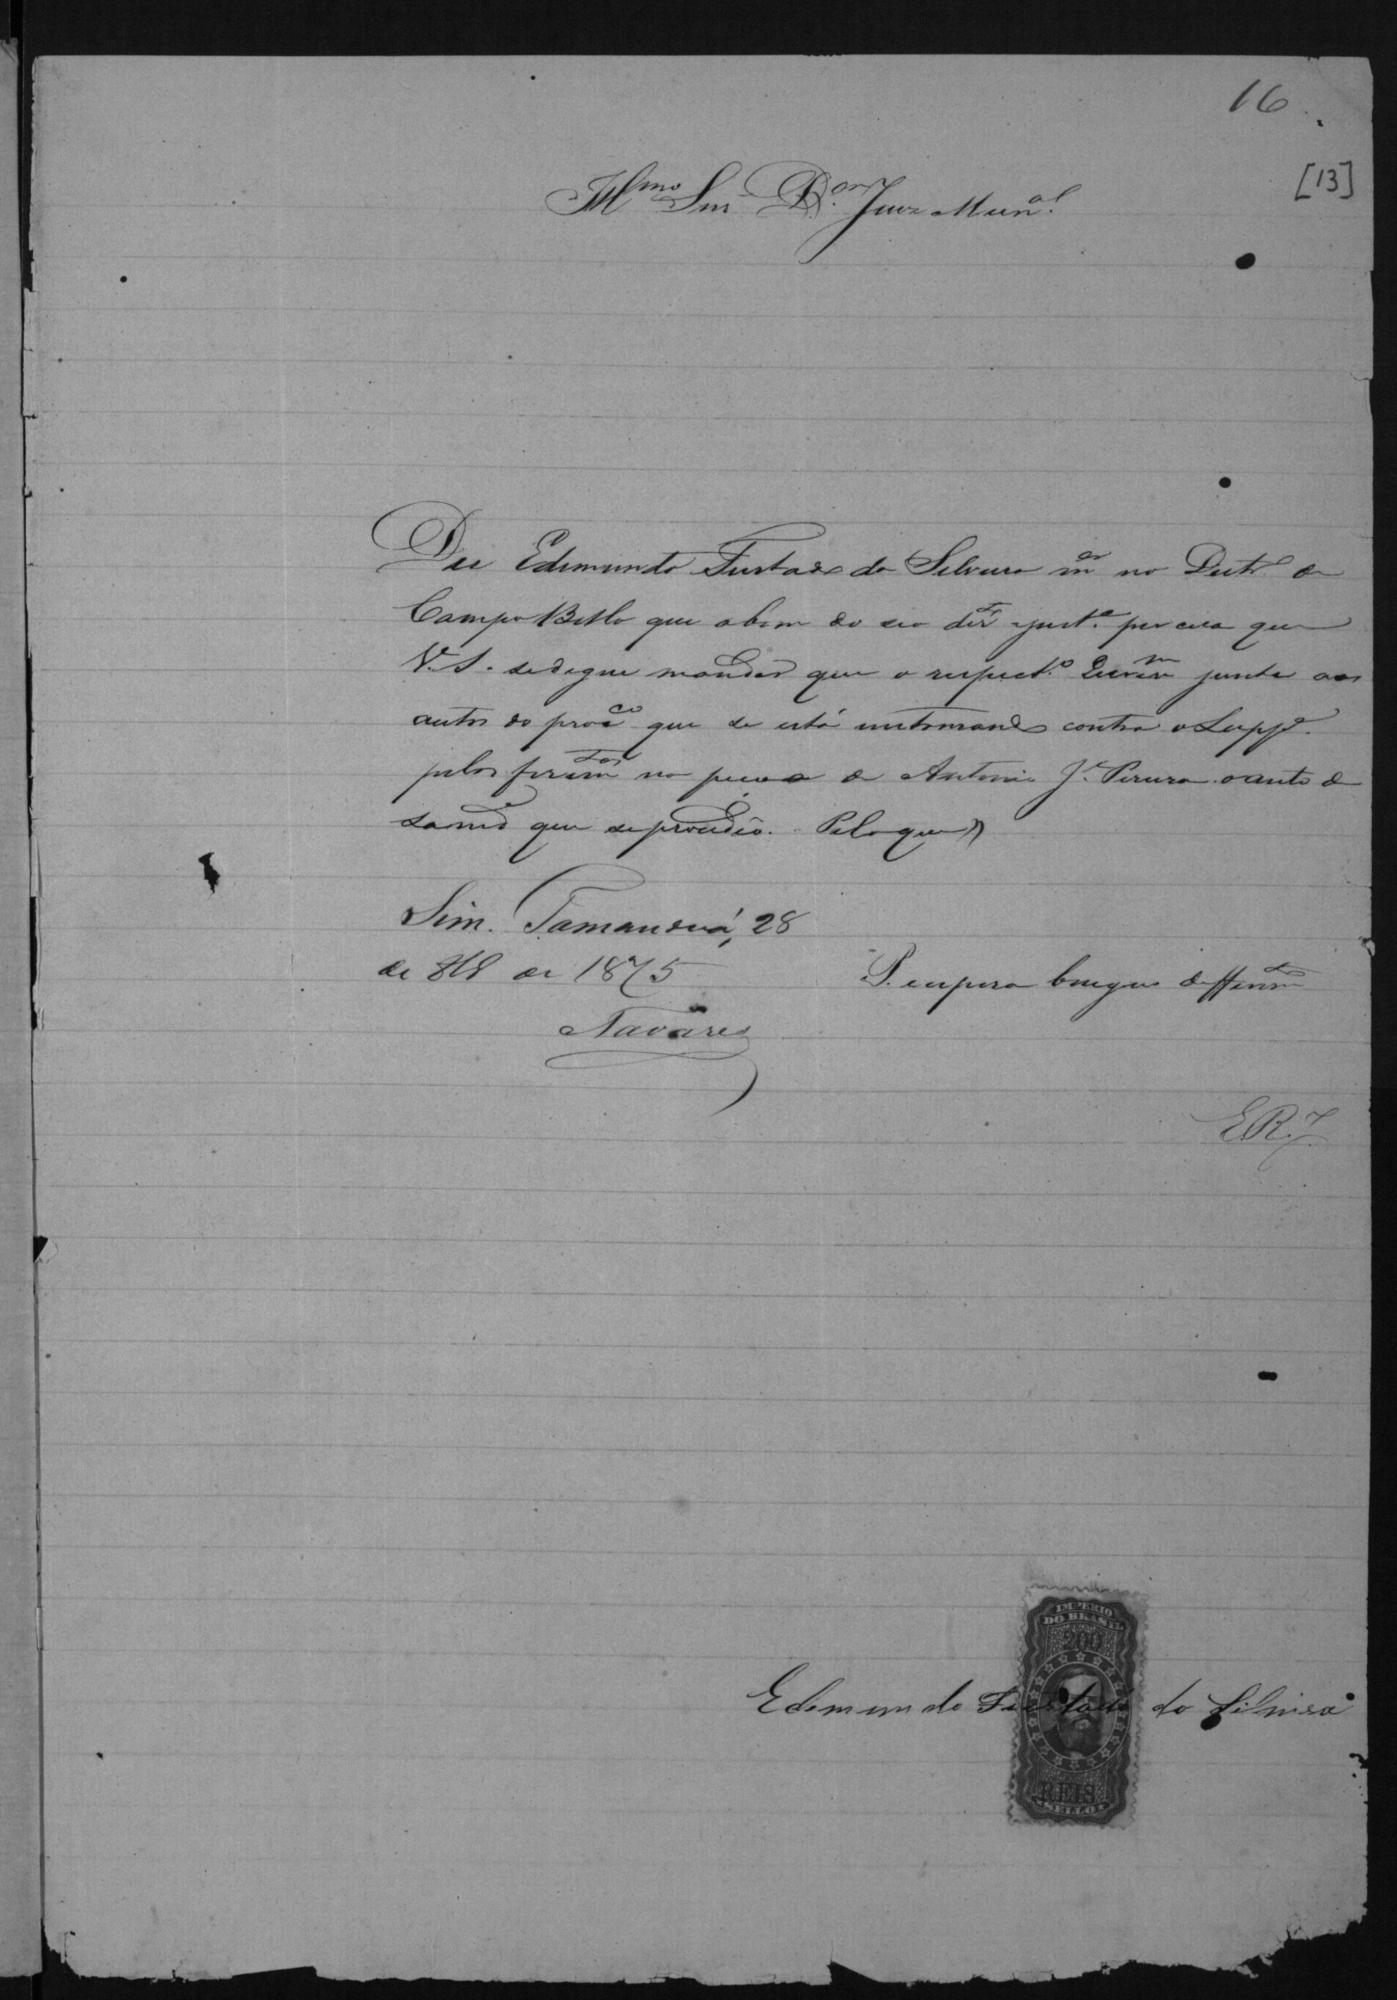 16
[13]
Illmo Snr Dor Juiz Munal
Diz Edemundo Furtado da Silveira mor no Distr. de
Campo Bello que a bem do seo dirto e justa. precisa que
V. S. se digne mandar que o respecto. Escrivm junte aos
autos do proceo que se está instaurando contra o Suppe.
pelos ferimtos na pessoa de Antonio Je. Pereira o auto de
sanide que se procedêo. Pelo que
Sim. Tamanduá, 28
de de 1875
P. espera benigno defferimto
Tavares
E.R.J.
IMPERIO
DO BRASIL
200
Edemundo Furtado da Silveira
REIS
SELLO